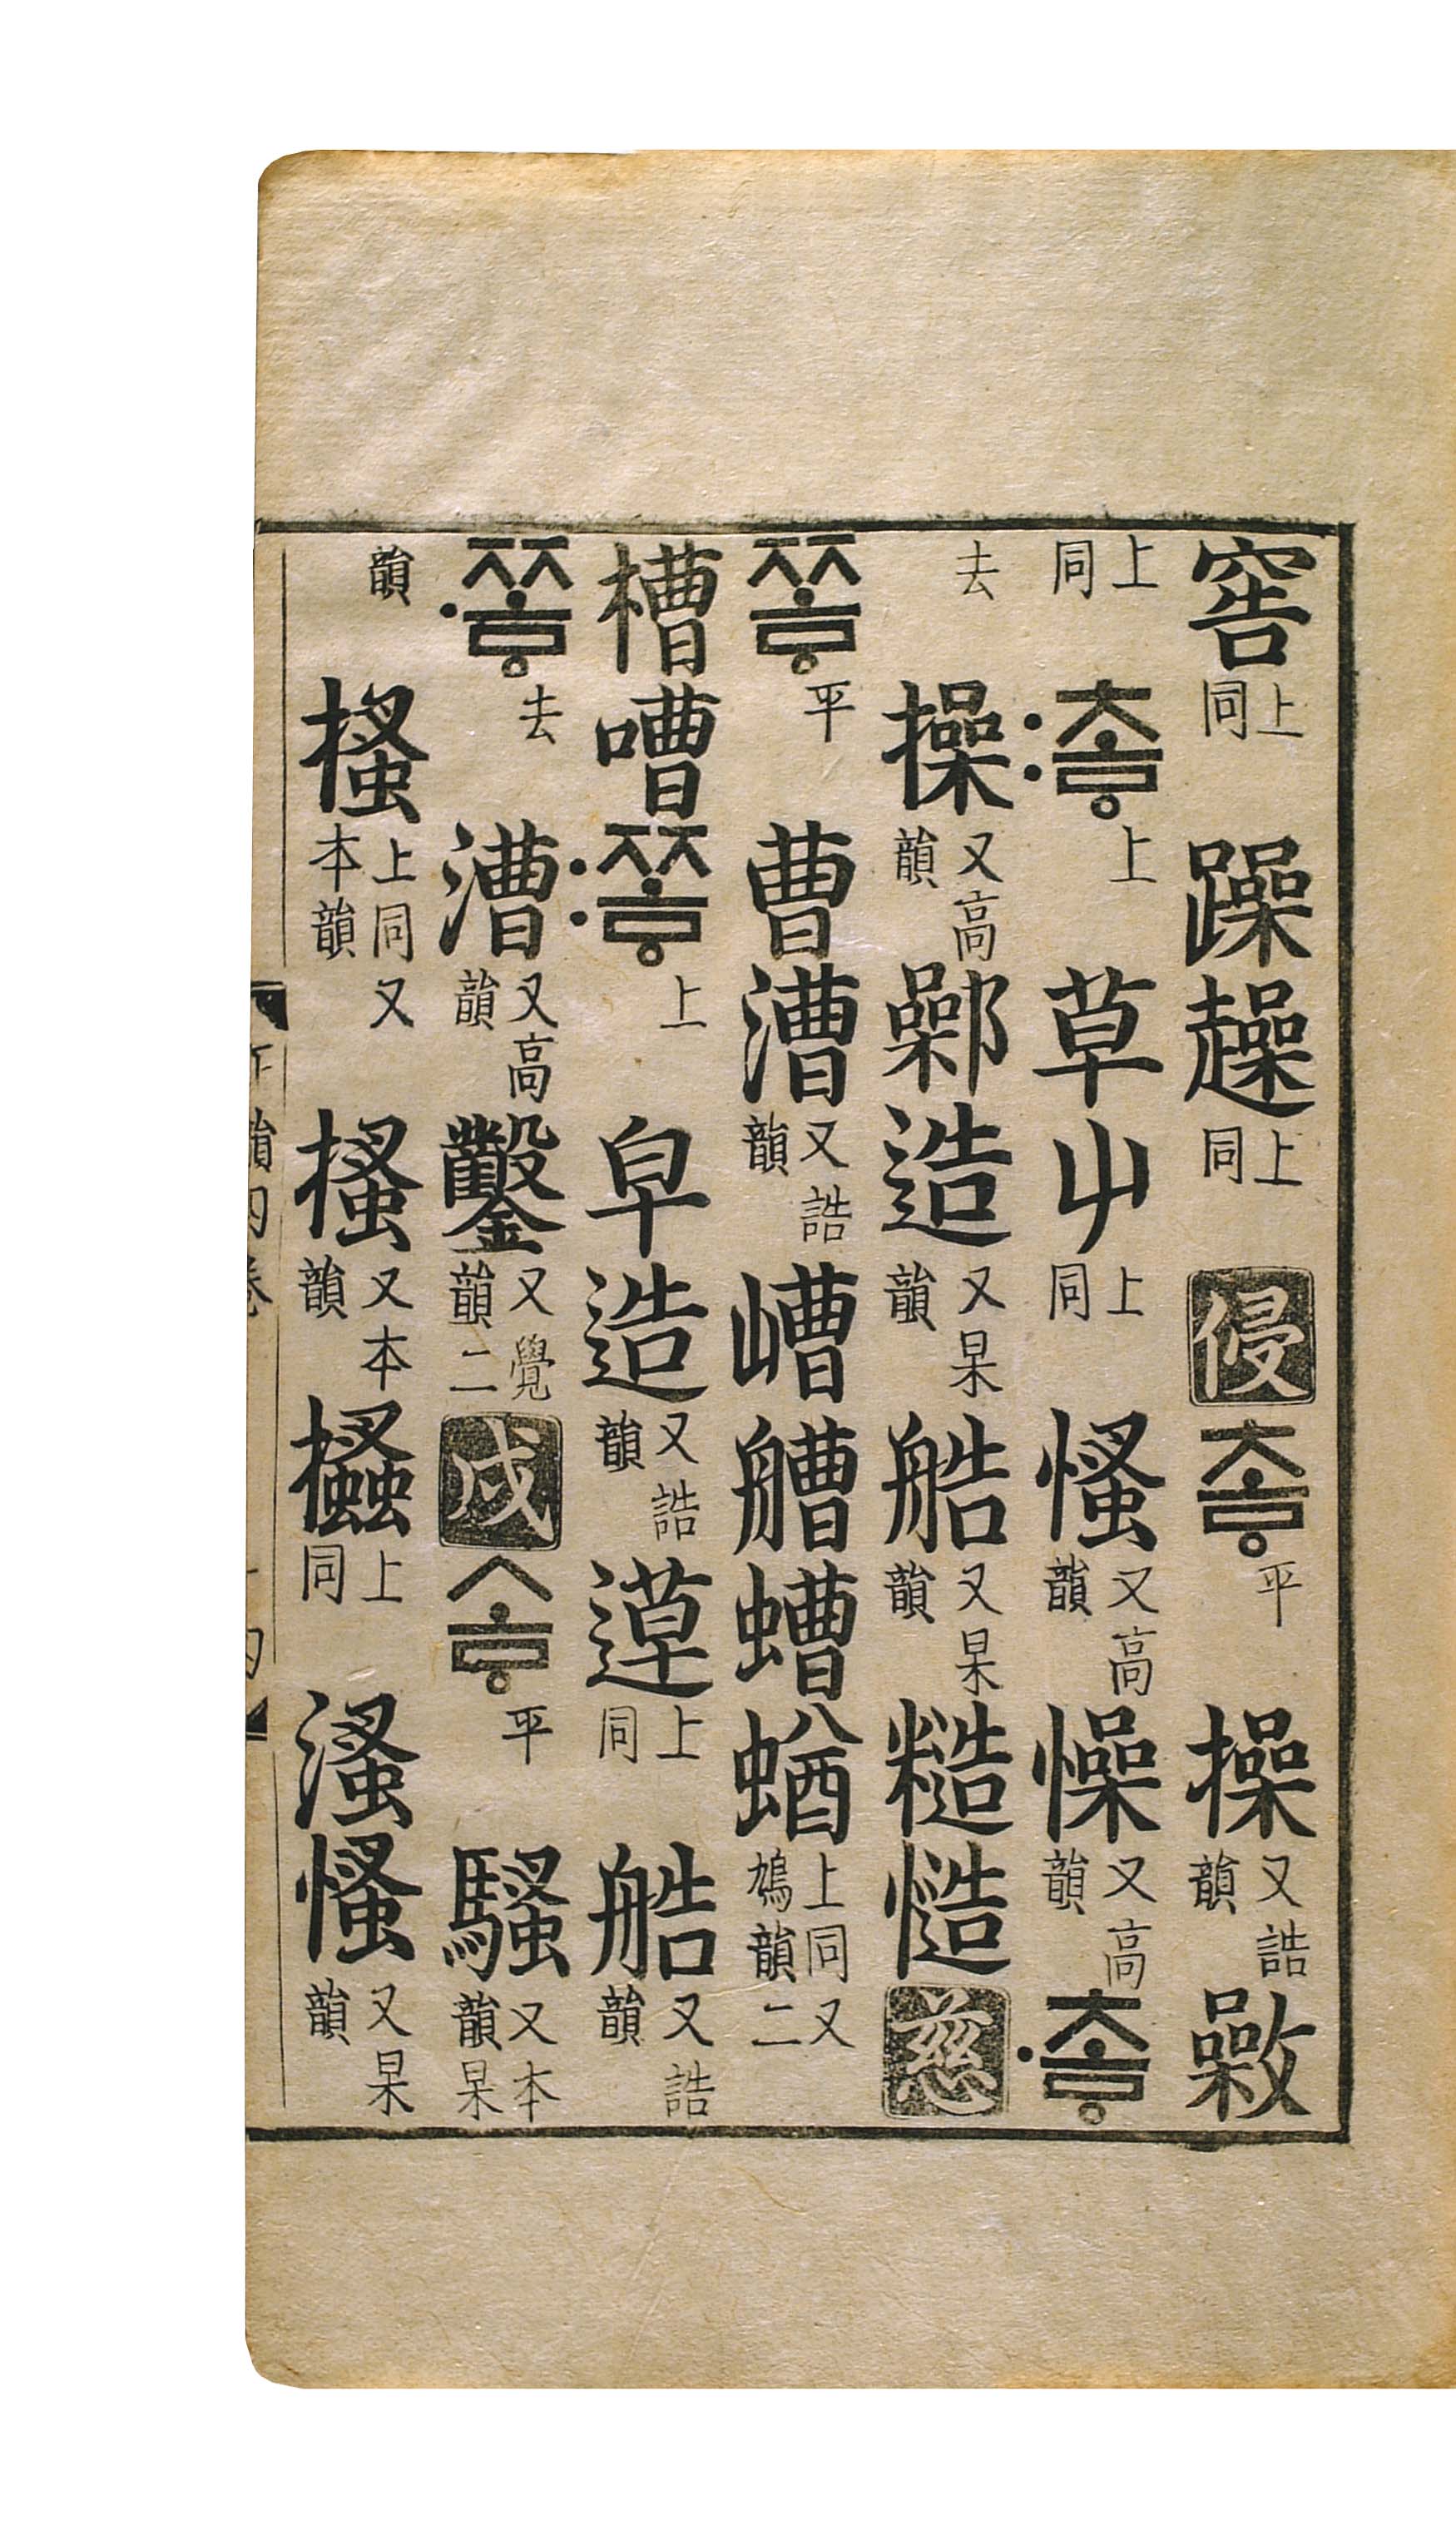 窖上同躁趮上同侵초ᇢ平操又誥韻
上同초ᇢ〯上草屮上同慅又高韻懆又高韻초ᇢ〮
去操又高韻鄵造又杲韻艁又杲韻糙慥慈
쪼ᇢ平曹漕又誥韻嶆艚螬蝤上同又鳩韻二
槽嘈쪼ᇢ〯上皁造又誥韻上同艁又誥韻
쪼ᇢ〮去漕又高韻鑿又覺韻二戌소ᇢ平騷又本韻杲
韻搔上同又本韻搔又本韻上同溞慅又杲韻